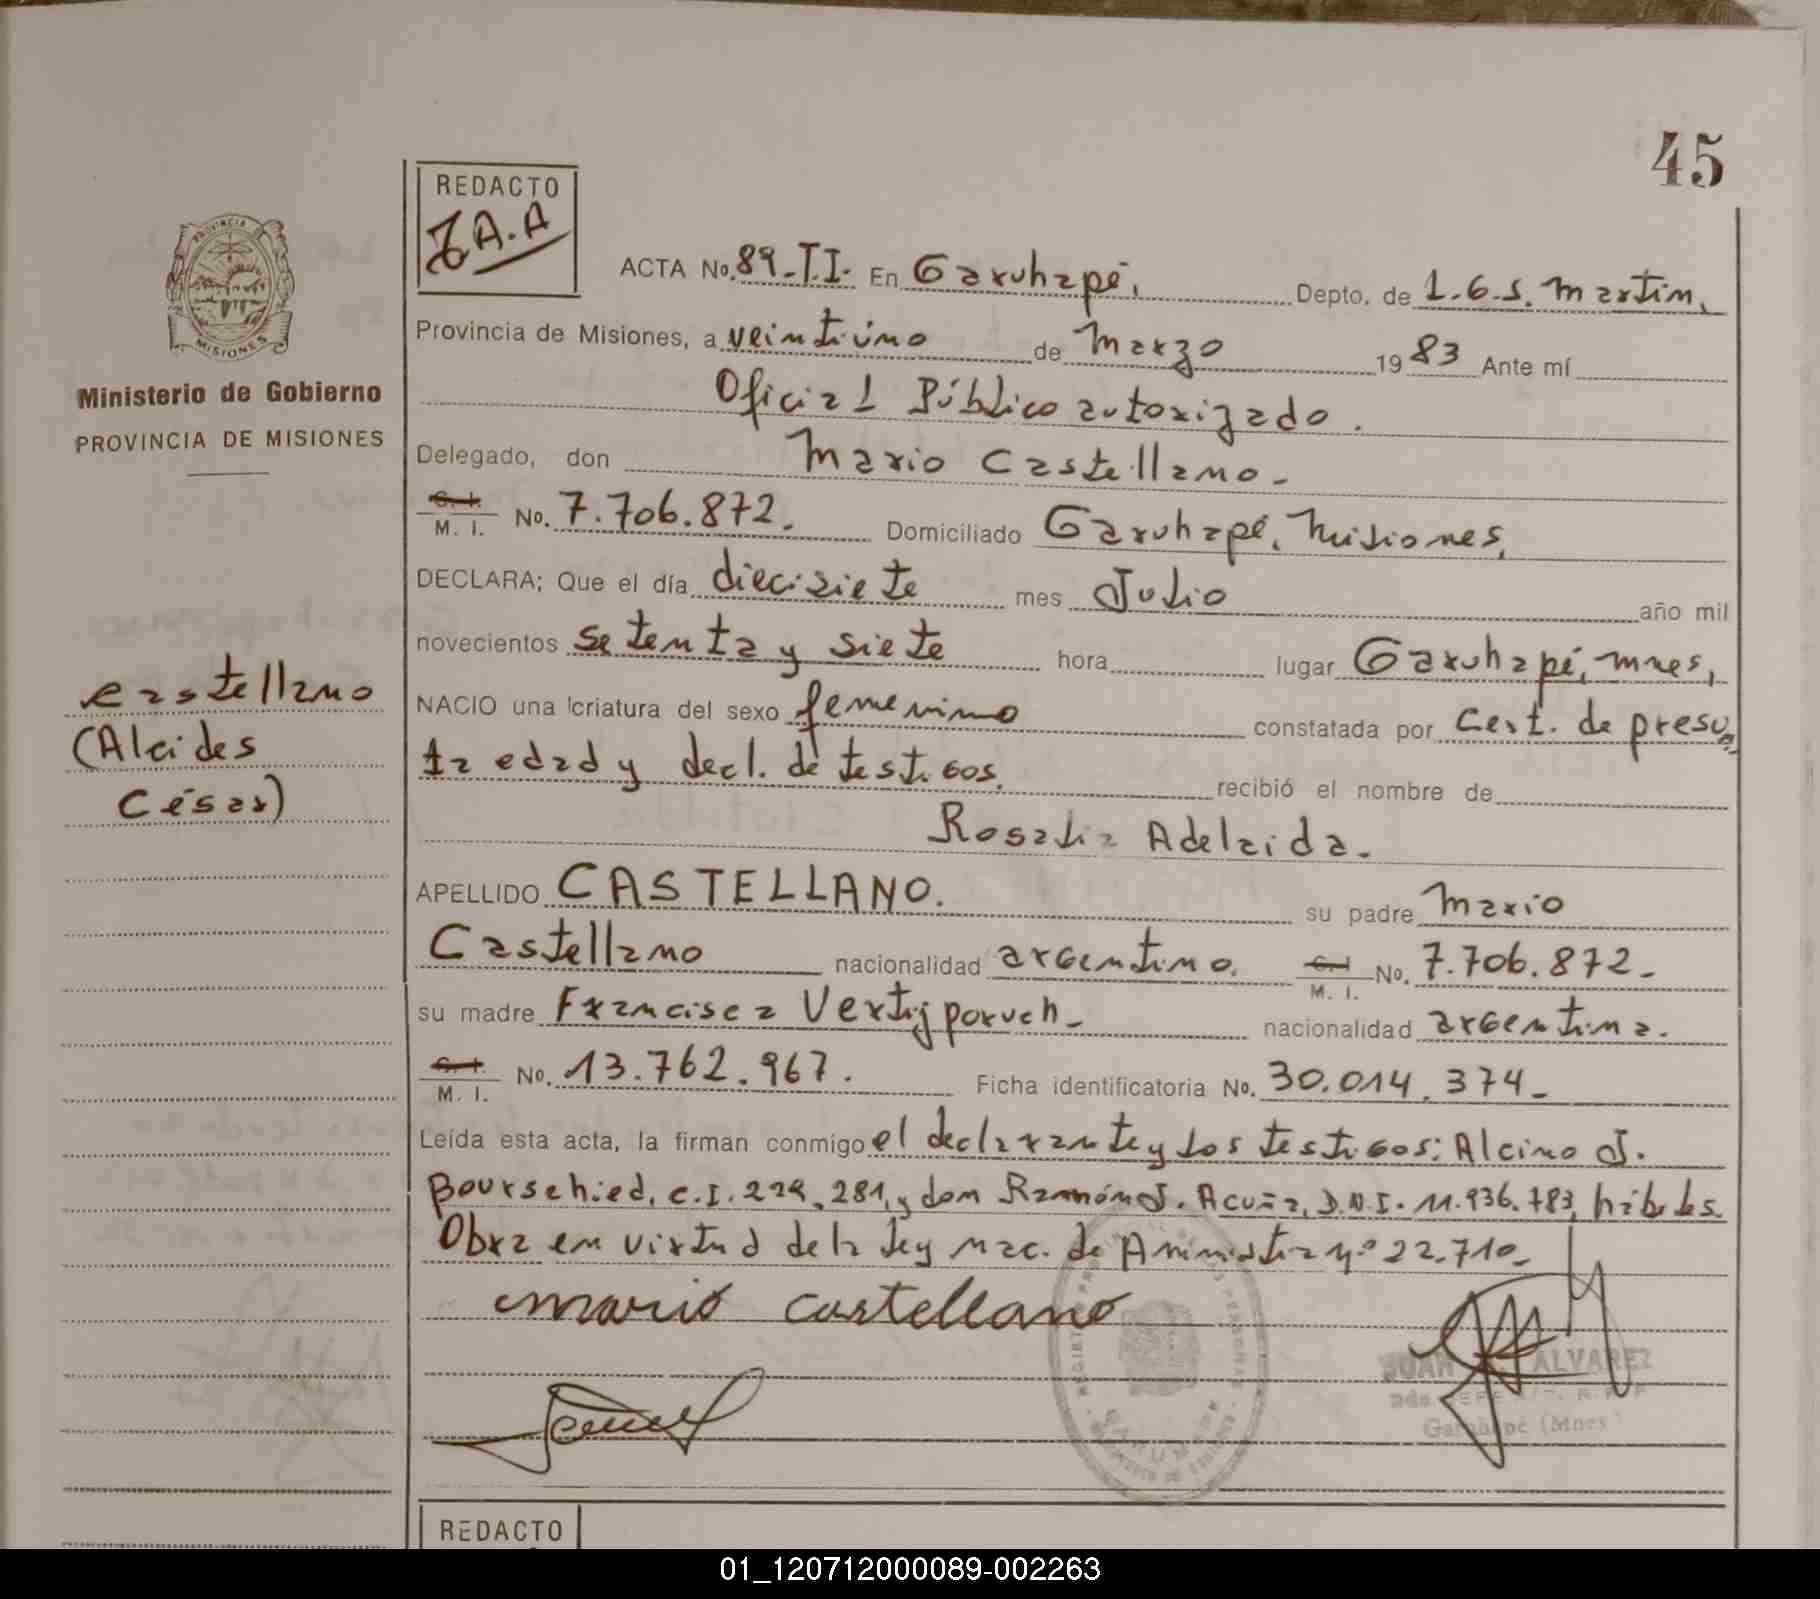 45
REDACTO
J A.A
PROVINCIA
MISIONES
Ministerio de Gobierno
PROVINCIA DE MISIONES
ACTA No. 89-T.I. En Garuhapé, Depto, de L.G.S. Martín,
Provincia de Misiones, a veintiúno de Marzo 1983 Ante mí
Oficial Público autorizado.
Delegado, don Mario Castellano.
C. I.
M. I. No. 7.706.872. Domiciliado Garuhapé, Misiones,
DECLARA; Que el día diecisiete mes Julio año mil
novecientos setenta y siete hora lugar Garuhapé, Mnes,
NACIO una criatura del sexo femenino constatada por Cert. de presu
ta edad y decl. de testigos, recibió el nombre de
Rosalia Adelaida.
APELLIDO CASTELLANO. su padre Mario
Castellano nacionalidad argentino. C. I.
M. I. No. 7.706.872-
su madre Francisca Vertijporuch- nacionalidad argentina.
C. I.
M. I. No. 13.762.967. Ficha identificatoria No. 30.014.374-
Leída esta acta, la firman conmigo el declarante y los testigos: Alcino J.
Bourschied, C.I. 229.281, y don Ramón J. Acuña, D.N.I. 11.936.783, hábiles.
Obra en virtud de la Ley Nac. de Aminsitia nº 22.710-
Mario Castellano
JUAN ALVAREZ
Garuhapé (Mnes)
Castellano
(Alcides
César)
REDACTO
01_120712000089-002263